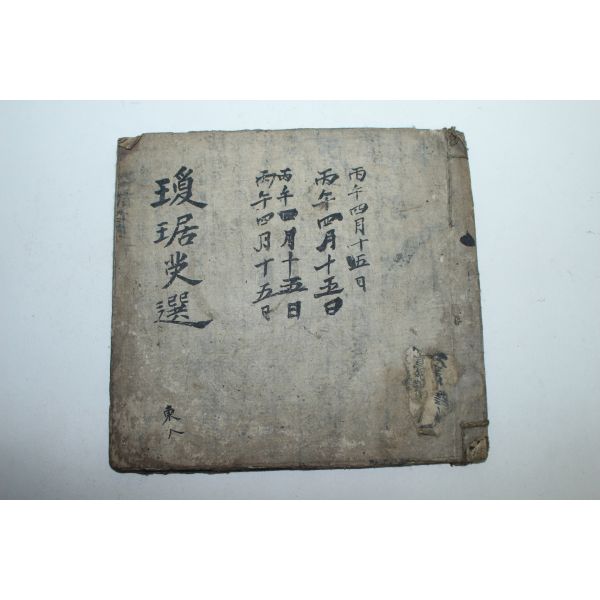 丙午四月十五日
丙午四月十五日
丙午四月十五日
丙午四月十五日
瓊琚㪅選
東人